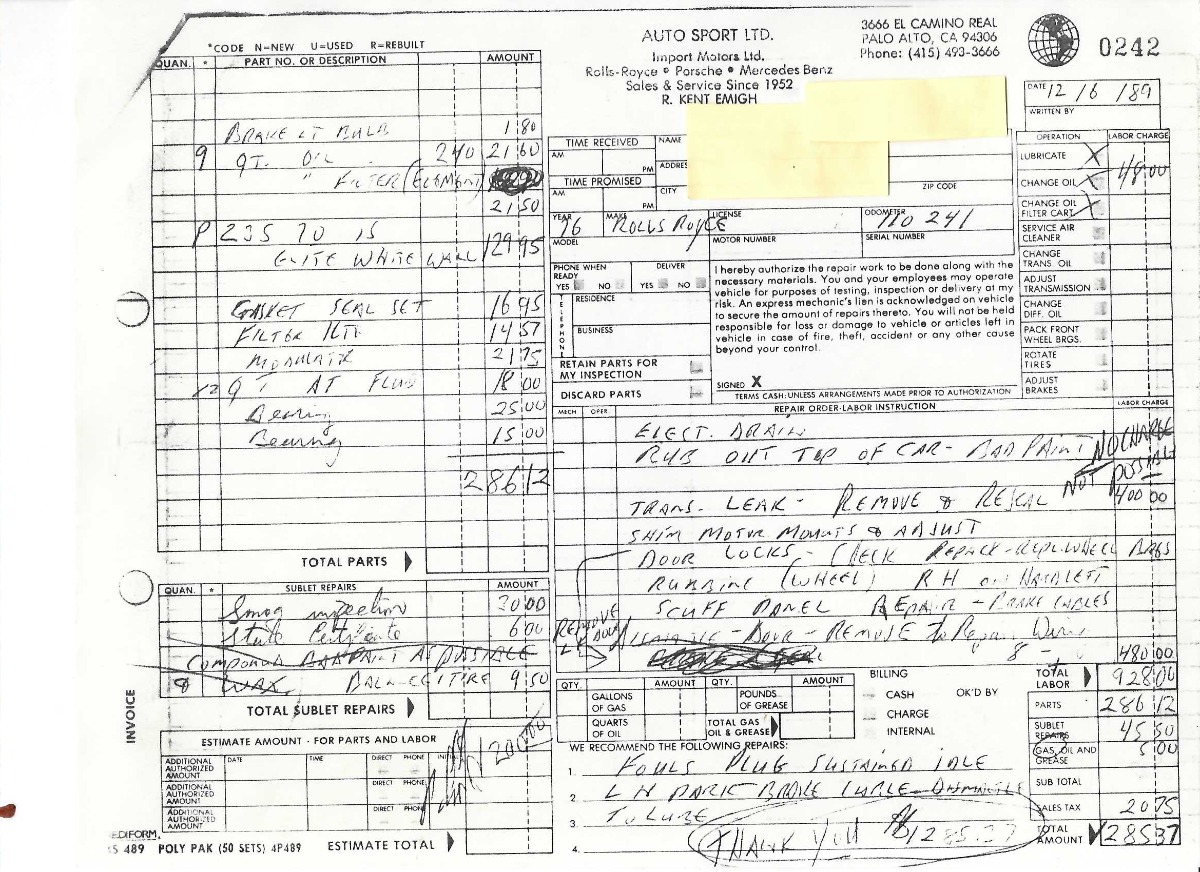 AUTO SPORT LTD.
Import Motors Ltd.
Rolls-Royce • Porsche • Mercedes Benz
Sales & Service Since 1952
R. KENT EMIGH
3666 EL CAMINO REAL
PALO ALTO, CA 94306
Phone: (415) 493-3666
0242
*CODE N=NEW U=USED R=REBUILT
QUAN. * PART NO. OR DESCRIPTION AMOUNT
BRAKE LT BULB 1 80
9 QT. OIL 240 21 60
" FILTER (ELEMENT)
21 50
P 235 70 15
ELITE WHITE WALL 129 95
GASKET SEAL SET 16 95
FILTER KIT 14 57
MODULATR 21 75
12 QT AT FLUID 18 00
Bearing 25 00
Bearing 15 00
286 12
TOTAL PARTS
QUAN. * SUBLET REPAIRS AMOUNT
Smog inspection 30 00
State Certificate 6 00
COMPOUND BAD PAINT AS POSSIBLE
& WAX, BALANCE TIRE 9 50
TOTAL SUBLET REPAIRS
INVOICE
ESTIMATE AMOUNT - FOR PARTS AND LABOR
1200.00
ADDITIONAL AUTHORIZED AMOUNT DATE TIME DIRECT PHONE INITIAL
ADDITIONAL AUTHORIZED AMOUNT DIRECT PHONE
ADDITIONAL AUTHORIZED AMOUNT DIRECT PHONE
EDIFORM.
S 489 POLY PAK (50 SETS) 4P489 ESTIMATE TOTAL
DATE 12/6/89
WRITTEN BY
TIME RECEIVED NAME
AM PM ADDRES
TIME PROMISED
AM PM CITY ZIP CODE
YEAR 76 MAKE ROLLS ROYCE LICENSE ODOMETER 110 241
MODEL MOTOR NUMBER SERIAL NUMBER
PHONE WHEN READY YES NO DELIVER YES NO
TELEPHONE RESIDENCE
BUSINESS
RETAIN PARTS FOR MY INSPECTION
DISCARD PARTS
I hereby authorize the repair work to be done along with the
necessary materials. You and your employees may operate
vehicle for purposes of testing, inspection or delivery at my
risk. An express mechanic's lien is acknowledged on vehicle
to secure the amount of repairs thereto. You will not be held
responsible for loss or damage to vehicle or articles left in
vehicle in case of fire, theft, accident or any other cause
beyond your control.
SIGNED X
TERMS CASH: UNLESS ARRANGEMENTS MADE PRIOR TO AUTHORIZATION
OPERATION LABOR CHARGE
LUBRICATE X 48.00
CHANGE OIL X
CHANGE OIL FILTER CART. X
SERVICE AIR CLEANER
CHANGE TRANS. OIL
ADJUST TRANSMISSION
CHANGE DIFF. OIL
PACK FRONT WHEEL BRGS.
ROTATE TIRES
ADJUST BRAKES
MECH OPER. REPAIR ORDER-LABOR INSTRUCTION LABOR CHARGE
ELECT. DRAIN
RUB OUT TOP OF CAR - BAD PAINT NO CHARGE
NOT POSSIBLE
TRANS. LEAK - REMOVE & RESEAL 400 00
SHIM MOTOR MOUNTS & ADJUST
DOOR LOCKS - CHECK REPACK - REPL. WHEEL BRGS
RUBBING (WHEEL) RH
SCUFF PANEL REPAIR - BRAKE CABLES
REMOVE DOOR
DISMANTLE - DOOR - REMOVE to Repair Wiring
8 - 480 00
QTY. AMOUNT QTY. AMOUNT
GALLONS OF GAS POUNDS OF GREASE
QUARTS OF OIL TOTAL GAS OIL & GREASE
BILLING
CASH OK'D BY
CHARGE
INTERNAL
TOTAL LABOR 928 00
PARTS 286 12
SUBLET REPAIRS 45 50
GAS, OIL AND GREASE 5 00
SUB TOTAL
SALES TAX 20 75
TOTAL AMOUNT 1285 37
WE RECOMMEND THE FOLLOWING REPAIRS:
1. FOULS PLUG SUSTAINED IDLE
2. LH PARK BRAKE CABLE - DISMANTLE
3. TO LUBE
4. THANK YOU $1285.37